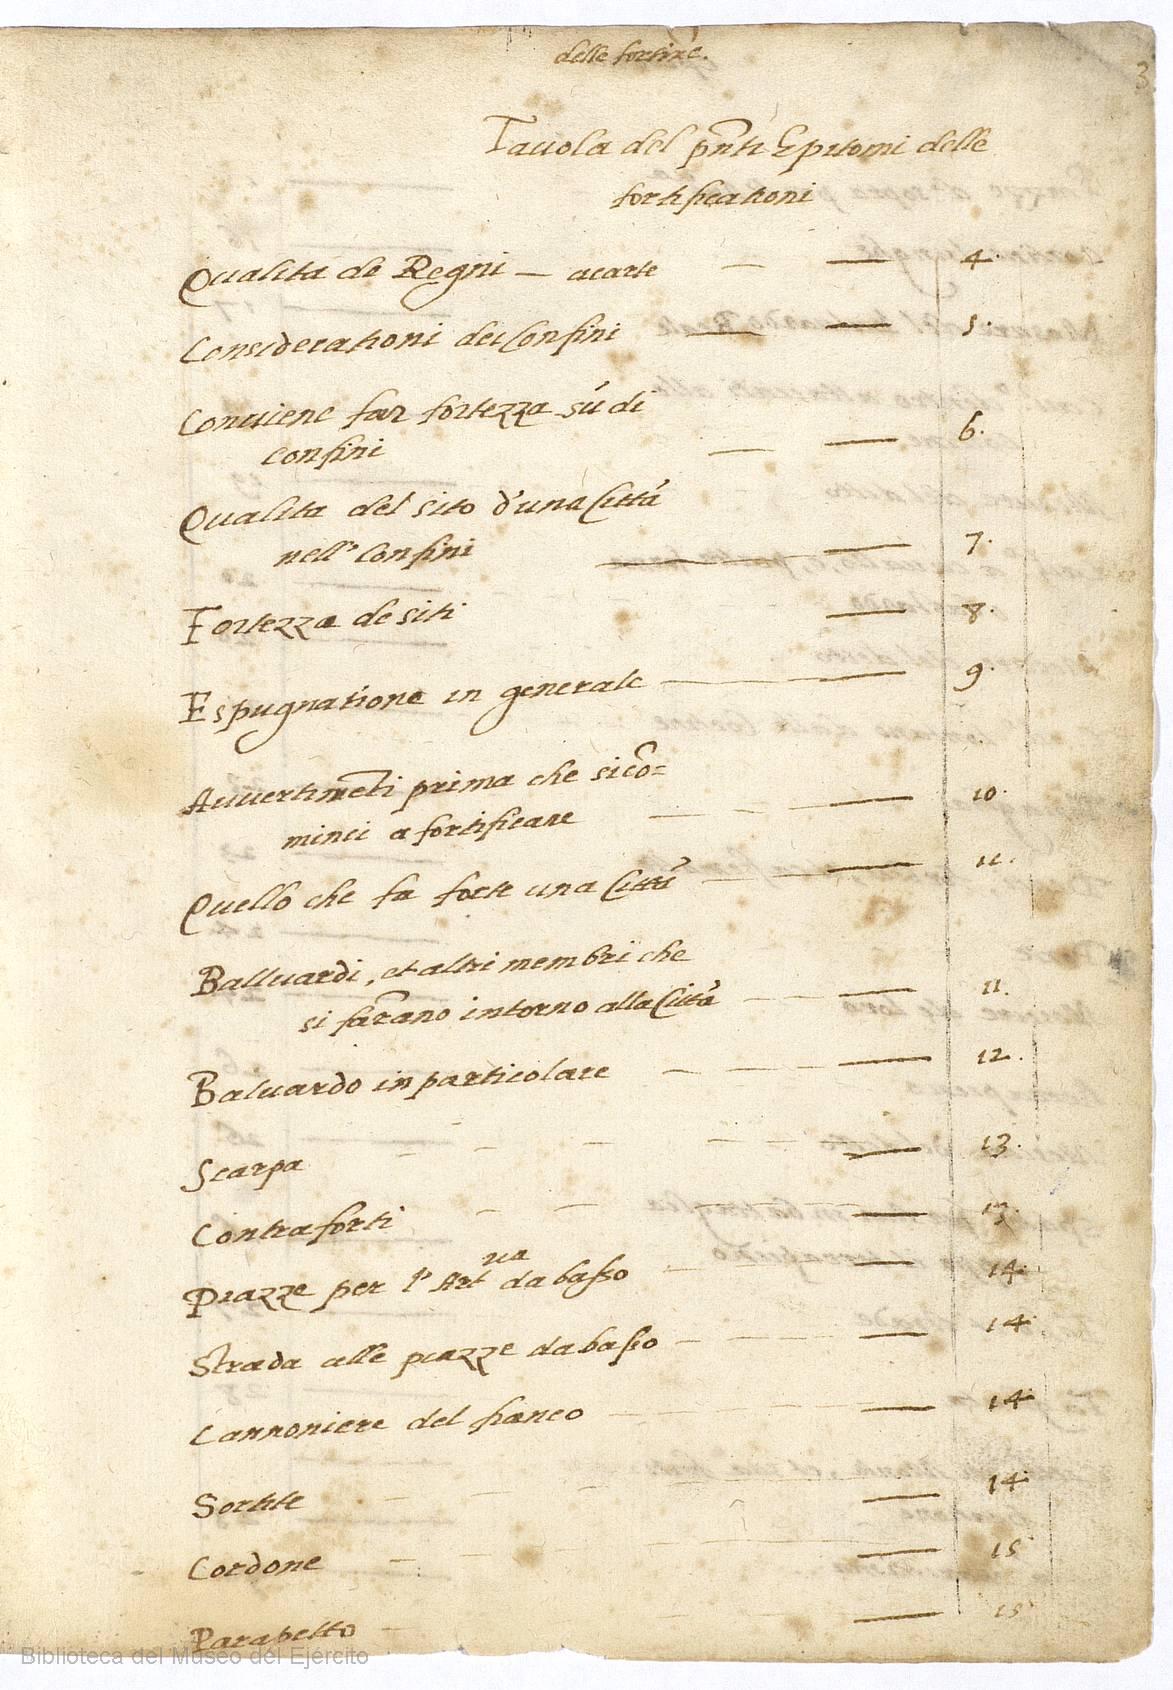 delle fortize.
3
Tauola del pnti Epitomi delle
fortificationi
Qualita de Regni — acarte 4.
Considerationi dei Confini 5.
Conuiene far fortezza sù di
confini 6.
Qualita del sito d'una Città
nell' Confini 7.
Fortezza de siti 8.
Espugnatione in generale 9.
Auuertimēti prima che si cō=
minci a fortificare 10.
Quello che fa forte una Città 11.
Balluardi, et altri membri che
si farāno intorno alla Città 11.
Baluardo in particolare 12.
Scarpa 13.
Contraforti 13.
Piazze per l' Art.ria da basso 14.
Strada alle piazze da basso 14.
Cannoniere del fianco 14.
Sortite 14.
Cordone 15
Parapetto 15
Biblioteca del Museo del Ejército